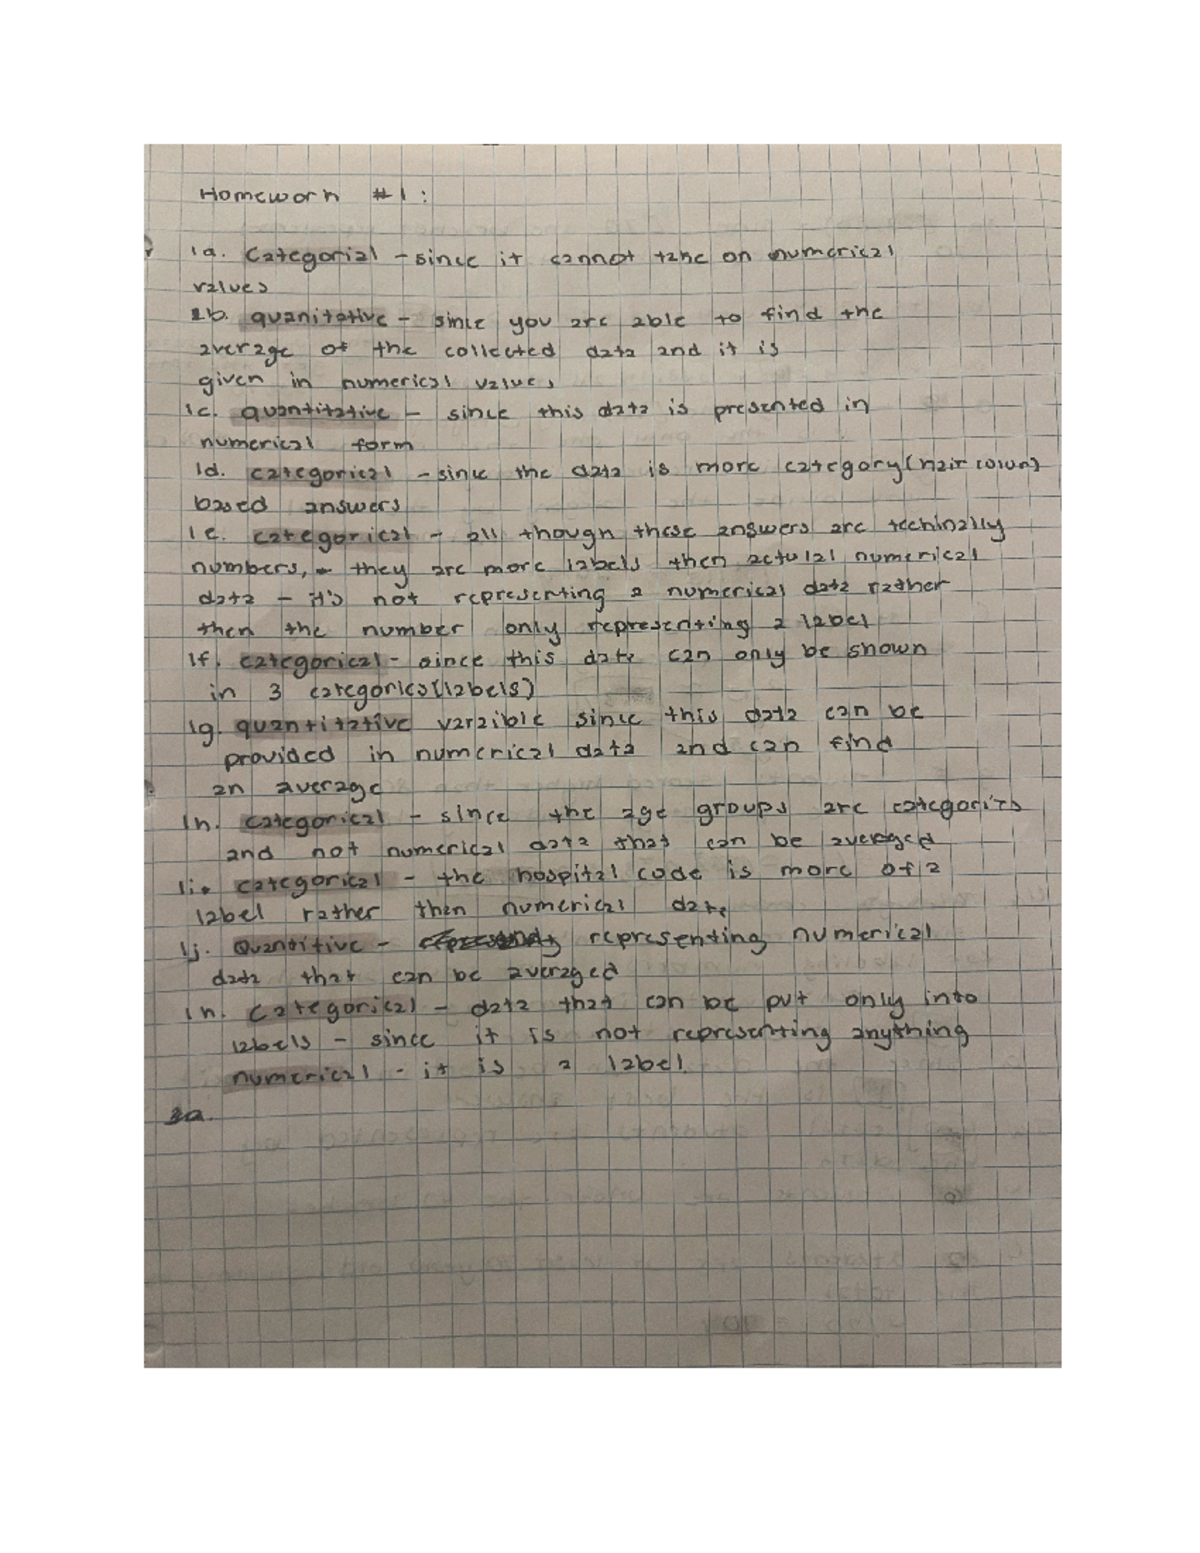 Homework #1:
1a. Categorial - since it cannot take on numerical
values
1b. quanitative - since you are able to find the
average of the collected data and it is
given in numerical values
1c. quantitative - since this data is presented in
numerical form
1d. categorical - since the data is more category (hair color)
based answers
1e. categorical - all though these answers are techinally
numbers, they are more labels then actulal numerical
data - it's not representing a numerical data rather
then the number only representing a label
1f. categorical - since this data can only be shown
in 3 categories (labels)
1g. quantitative varaible since this data can be
provided in numerical data and can find
an average
1h. categorical - since the age groups are categories
and not numerical data that can be averaged
1i. categorical - the hospital code is more of a
label rather then numerical data
1j. Quantitive - representing numerical
data that can be averaged
1k. Categorical - data that can be put only into
labels - since it is not representing anything
numerical - it is a label